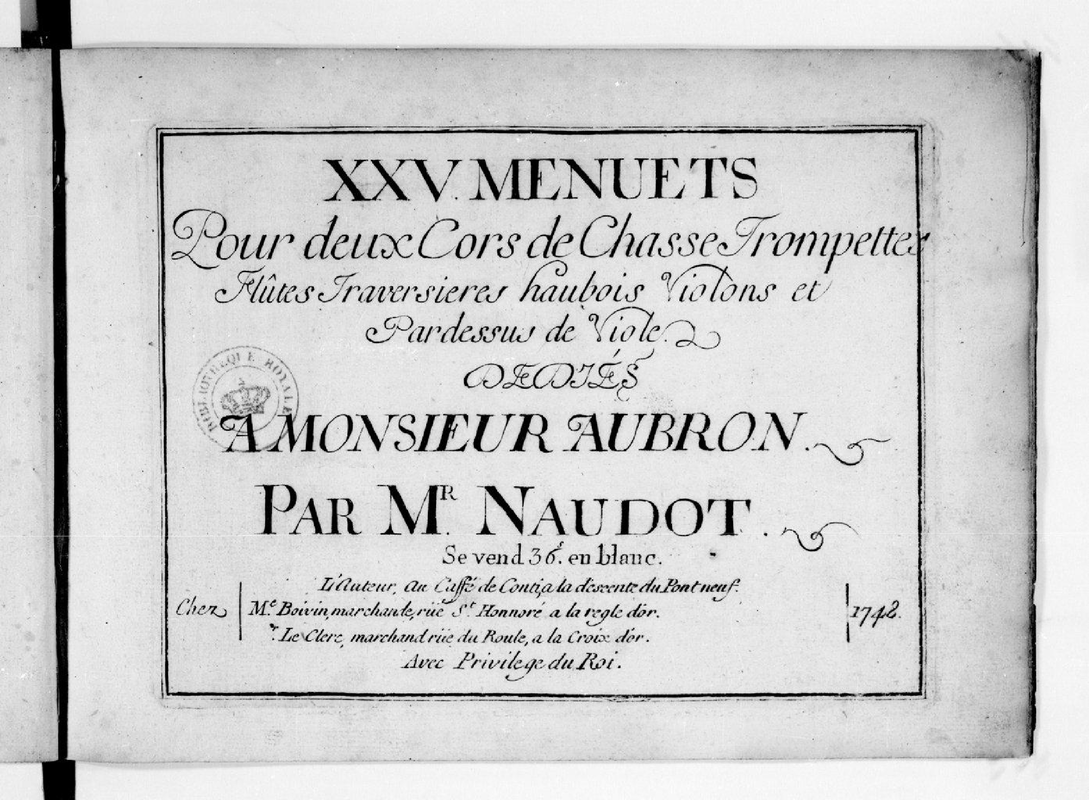 XXV. MENUETS
Pour deux Cors de Chasse Trompettes
Flûtes Traversieres haubois Violons et
Pardessus de Viole.
DEDIÉS
A MONSIEUR AUBRON.
PAR M.R NAUDOT.
Se vend 36.s en blanc.
L'Auteur, au Caffé de Conti, a la descente du Pont neuf.
Chez M.e Boivin, marchande, rüe S.t Honnoré a la regle d'or. 1742.
r. Le Clerc, marchand rüe du Roule, a la Croix d'or.
Avec Privilege du Roi.
BIBLIOTHEQUE ROYALE